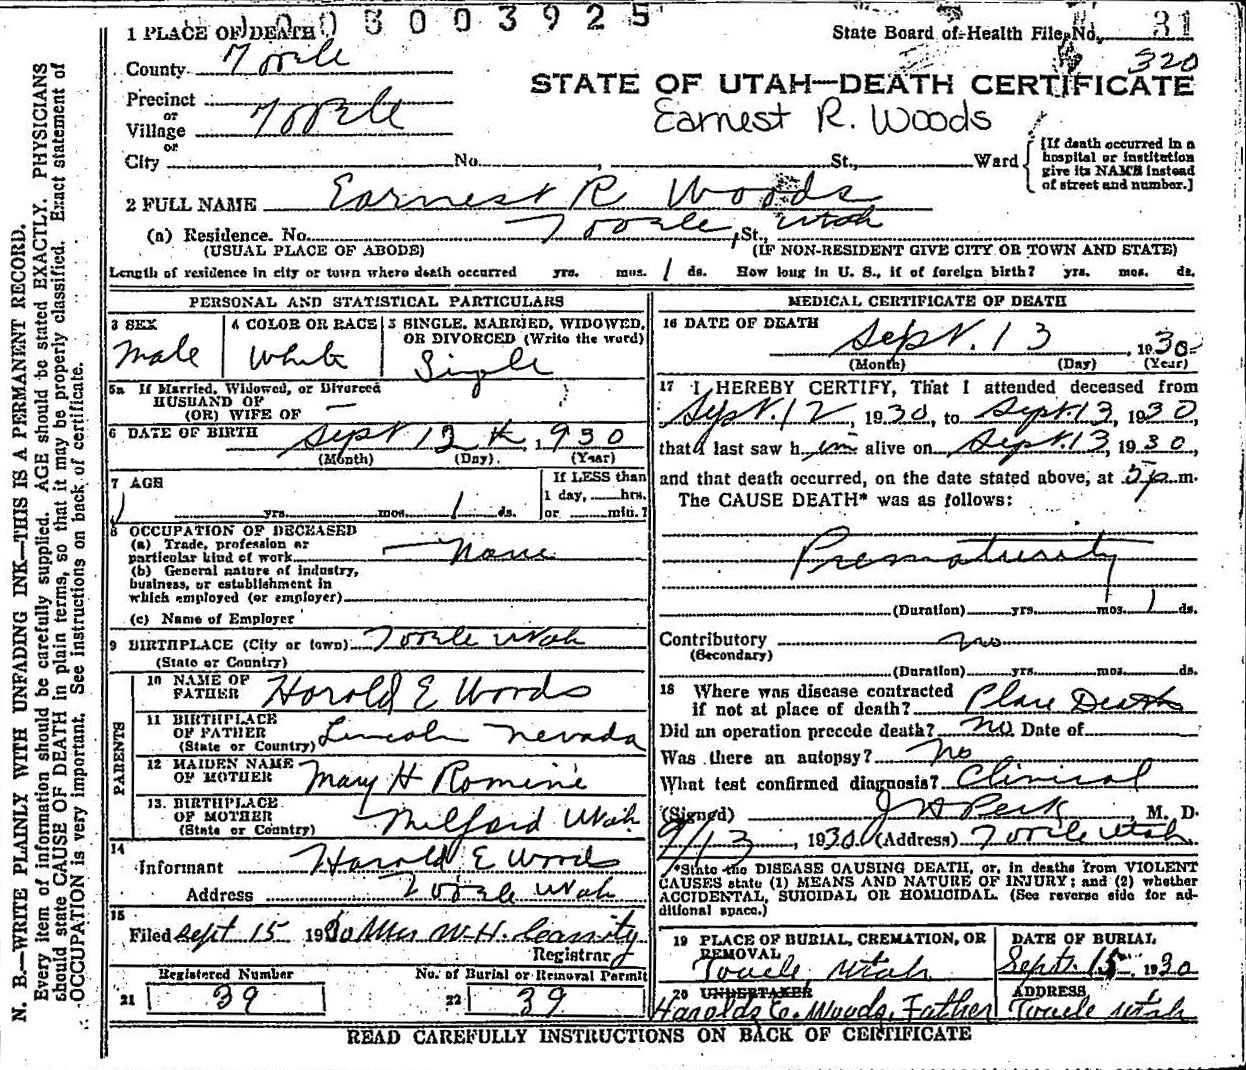 1 PLACE OF DEATH
1003003925
State Board of Health File No. 31
320
County Tooele
STATE OF UTAH—DEATH CERTIFICATE
Precinct
or
Village Tooele
or
Earnest R. Woods
City No. St., Ward
[If death occurred in a
hospital or institution
give its NAME instead
of street and number.]
2 FULL NAME Earnest R Woods
(a) Residence. No. Tooele, St., Utah
(USUAL PLACE OF ABODE) (IF NON-RESIDENT GIVE CITY OR TOWN AND STATE)
Length of residence in city or town where death occurred yrs. mos. 1 ds. How long in U. S., if of foreign birth? yrs. mos. ds.
PERSONAL AND STATISTICAL PARTICULARS
3 SEX
Male
4 COLOR OR RACE
White
5 SINGLE, MARRIED, WIDOWED,
OR DIVORCED (Write the word)
Single
5a If Married, Widowed, or Divorced
HUSBAND OF
(OR) WIFE OF —
6 DATE OF BIRTH Sept 12th, 1930
(Month) (Day). (Year)
7 AGE
yrs. mos. 1 ds.
If LESS than
1 day, hrs.
or min.?
8 OCCUPATION OF DECEASED
(a) Trade, profession or
particular kind of work None
(b) General nature of industry,
business, or establishment in
which employed (or employer)
(c) Name of Employer
9 BIRTHPLACE (City or town) Tooele Utah
(State or Country)
PARENTS
10 NAME OF
FATHER Harold E Woods
11 BIRTHPLACE
OF FATHER
(State or Country) Lincoln Nevada
12 MAIDEN NAME
OF MOTHER Mary H Romine
13. BIRTHPLACE
OF MOTHER
(State or Country) Milford Utah
14
Informant Harold E Woods
Address Tooele Utah
15
Filed Sept 15 1930 Mrs W. H. Cassity
Registrar
Registered Number
21 39
No. of Burial or Removal Permit
22 39
MEDICAL CERTIFICATE OF DEATH
16 DATE OF DEATH
Sept. 13, 1930
(Month) (Day) (Year)
17 I HEREBY CERTIFY, That I attended deceased from
Sept. 12, 1930, to Sept. 13, 1930,
that I last saw him alive on Sept. 13, 1930,
and that death occurred, on the date stated above, at 5 p m.
The CAUSE DEATH* was as follows:
Prematurity
(Duration) yrs. mos. 1 ds.
Contributory no
(Secondary)
(Duration) yrs. mos. ds.
18 Where was disease contracted
if not at place of death? Place Death
Did an operation precede death? no Date of
Was there an autopsy? No
What test confirmed diagnosis? Clinical
(Signed) J H Peck, M. D.
9/13, 1930 (Address) Tooele Utah
*State the DISEASE CAUSING DEATH, or, in deaths from VIOLENT
CAUSES state (1) MEANS AND NATURE OF INJURY; and (2) whether
ACCIDENTAL, SUICIDAL OR HOMICIDAL. (See reverse side for ad-
ditional space.)
19 PLACE OF BURIAL, CREMATION, OR
REMOVAL
Tooele Utah
DATE OF BURIAL
Sept. 15, 1930
20 UNDERTAKER
Harolds E. Woods, Father
ADDRESS
Tooele Utah
READ CAREFULLY INSTRUCTIONS ON BACK OF CERTIFICATE
N. B.—WRITE PLAINLY WITH UNFADING INK—THIS IS A PERMANENT RECORD.
Every item of information should be carefully supplied. AGE should be stated EXACTLY. PHYSICIANS
should state CAUSE OF DEATH in plain terms, so that it may be properly classified. Exact statement of
OCCUPATION is very important. See instructions on back of certificate.